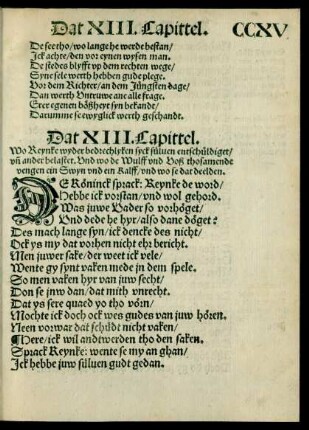 Dat XIII. Capittel. CCXV
De seetho/ wo langhe he werde bestan/
Jck achte/ den vor eynen wysen man.
De stedes blyfft vp dem rechten wege/
Syne sele werth hebben gude plege.
Vor dem Richter/ an dem Jüngsten dage/
Dan werth Vntruwe ane alle frage.
Erer egenen bößheyt syn bekandt/
Darumme se ewyglick werth geschandt.
Dat XIII. Capittel.
Wo Reynke wyder bedrechlyken seck süluen entschüldiget/
vñ ander belaster. Vnd wo de Wulff vnd Voß thosamende
vengen ein Swyn vnd ein Kalff/ vnd wo se dat deelden.
DE Köninck sprack: Reynke de word/
Hebbe ick vorstan/ vnd wol gehord.
Was juwe Vader so vorhöget/
Vnd dede he hyr/ also dane döget?
Des mach lange syn/ ick dencke des nicht/
Ock ys my dat vorhen nicht ehr bericht.
Men juwer sake/ der weet ick vele/
Wente gy synt vaken mede in dem spele.
So men vaken hyr van juw secht/
Don se jnw dan/ dat mith vnrecht.
Dat ys sere quaed yo tho vörn/
Mochte ick doch ock wes gudes van juw hören.
Neen vorwar dat schüdt nicht vaken/
Here/ ick wil andtwerden tho den saken.
Sprack Reynke: wente se my an ghan/
Jck hebbe juw süluen gudt gedan.